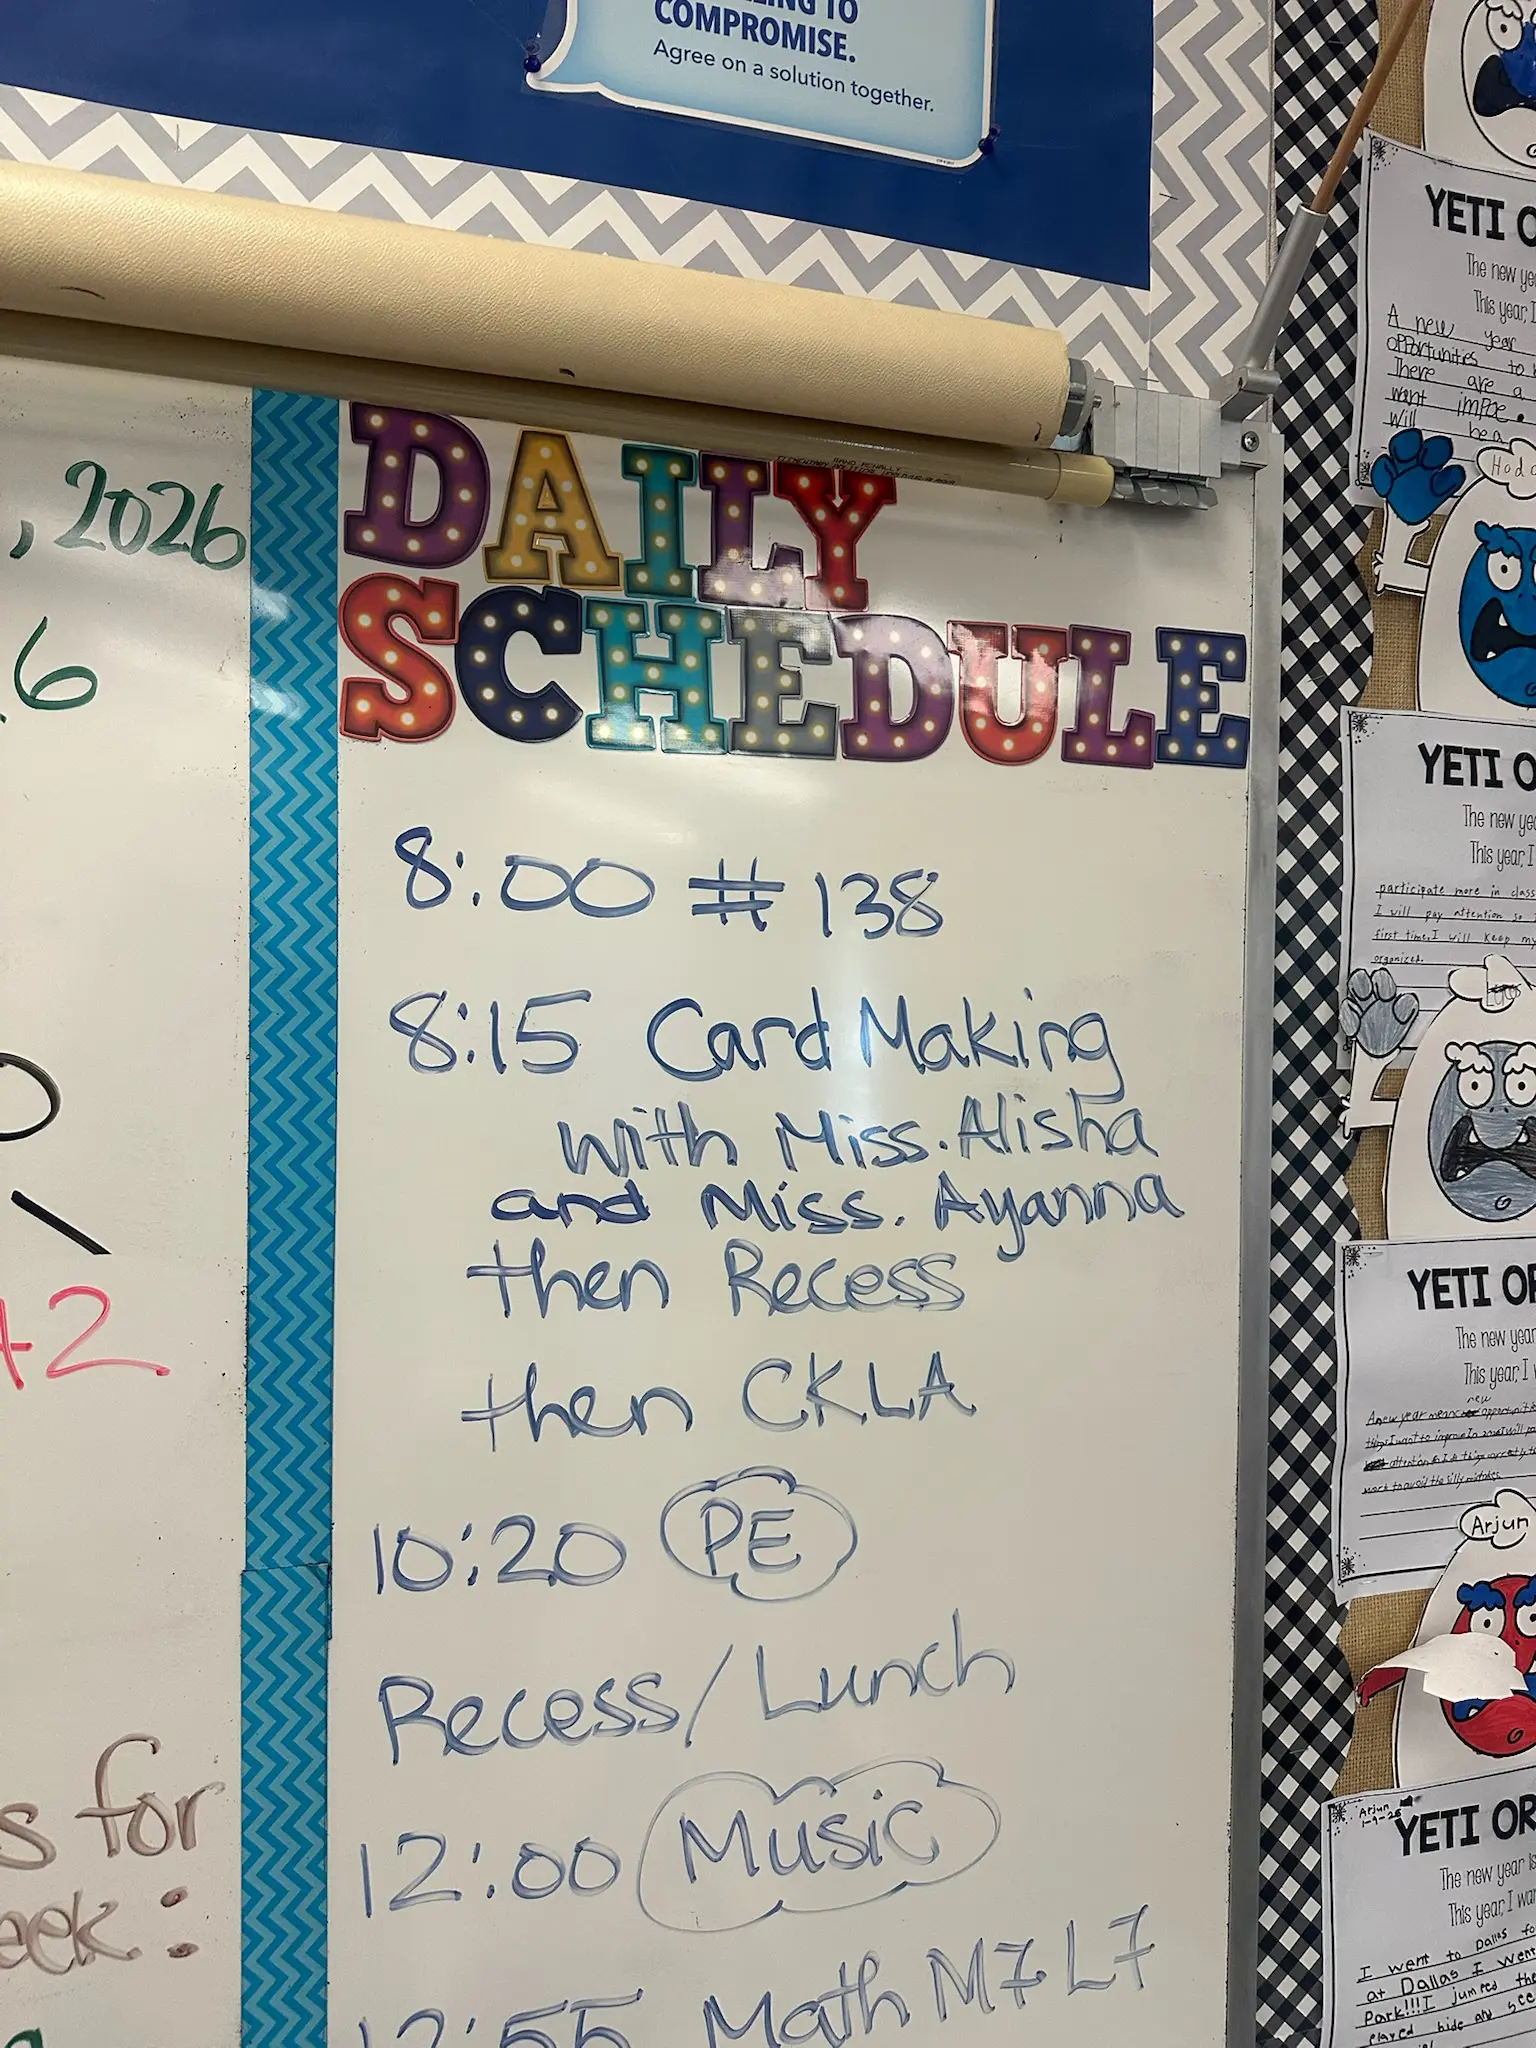 COMPROMISE.
Agree on a solution together.
, 2026
.6
+2
s for
eek:
DAILY
SCHEDULE
8:00 # 138
8:15 Card Making
with Miss. Alisha
and Miss. Ayanna
then Recess
then CKLA
10:20 PE
Recess/Lunch
12:00 Music
12:55 Math M7 L7
YETI O
The new ye
This year, I
A new year
opportunities to
There are a
want
will be a
YETI O
The new ye
This year, I
participate more in class
I will pay attention so I
first time. I will keep my
organized.
YETI OR
The new year
This year, I
Arjun
Arjun
YETI OR
The new year is
This year, I wa
I went to Dallas fo
at Dallas I went
Park!!! I jumped the
played hide and see